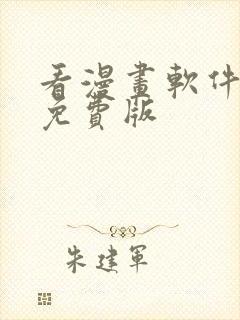 看漫畫軟件
免費版
朱建軍